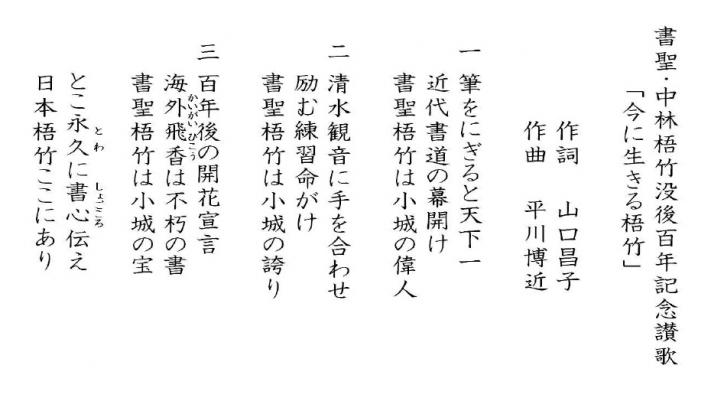 書聖・中林梧竹没後百年記念讃歌
「今に生きる梧竹」
作詞 山口昌子
作曲 平川博近
一 筆をにぎると天下一
近代書道の幕開け
書聖梧竹は小城の偉人
二 清水観音に手を合わせ
励む練習命がけ
書聖梧竹は小城の誇り
三 百年後の開花宣言
海外飛香は不朽の書
かいがいひこう
書聖梧竹は小城の宝
とこ永久に書心伝え
とわ しょごころ
日本梧竹ここにあり